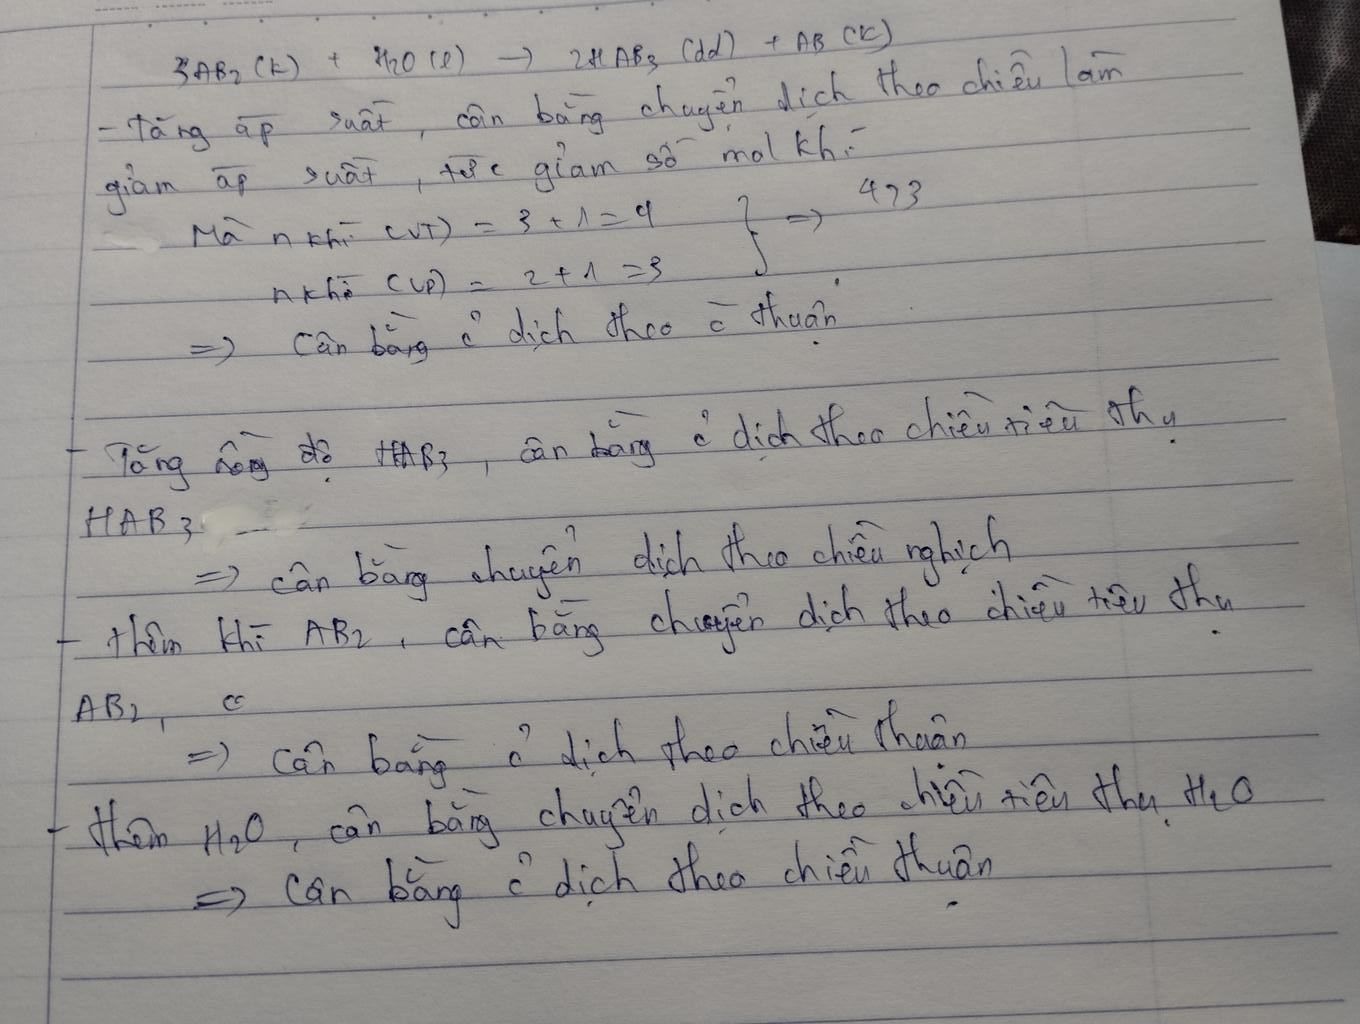 3AB2 (k) + H2O (l) → 2HAB3 (dd) + AB (k)
- Tăng áp suất, cân bằng chuyển dịch theo chiều làm
giảm áp suất, tức giảm số mol khí
Mà n khí (VT) = 3 + 1 = 4 } => 4>3
n khí (VP) = 2 + 1 = 3
=> Cân bằng c̉ dịch theo c̄ thuận
- Tăng nồng độ HAB3, cân bằng c̉ dịch theo chiều tiêu thụ
HAB3
=> cân bằng chuyển dịch theo chiều nghịch
- thêm khí AB2, cân bằng chuyển dịch theo chiều tiêu thụ
AB2,
=> cân bằng c̉ dịch theo chiều thuận
- thêm H2O, cân bằng chuyển dịch theo chiều tiêu thụ H2O
=> Cân bằng c̉ dịch theo chiều thuận